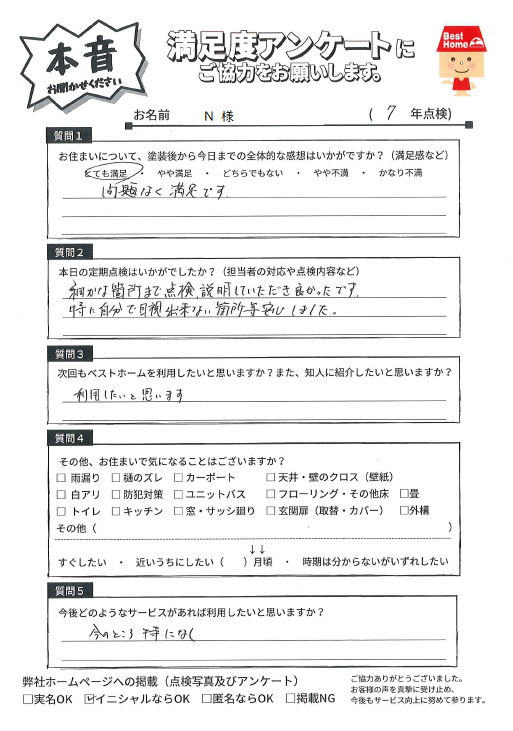 本音
お聞かせください
満足度アンケートに
ご協力をお願いします。
Best Home
お名前 N 様 ( 7 年点検)
質問1
お住まいについて、塗装後から今日までの全体的な感想はいかがですか？（満足感など）
とても満足 ・ やや満足 ・ どちらでもない ・ やや不満 ・ かなり不満
問題なく満足です。
質問2
本日の定期点検はいかがでしたか？（担当者の対応や点検内容など）
細かな箇所まで点検、説明していただき良かったです。
特に自分で目視出来ない箇所等安心しました。
質問3
次回もベストホームを利用したいと思いますか？また、知人に紹介したいと思いますか？
利用したいと思います
質問4
その他、お住まいで気になることはございますか？
□ 雨漏り □ 樋のズレ □ カーポート □ 天井・壁のクロス（壁紙）
□ 白アリ □ 防犯対策 □ ユニットバス □ フローリング・その他床 □畳
□ トイレ □ キッチン □ 窓・サッシ廻り □ 玄関扉（取替・カバー） □外構
その他（ ）
↓↓
すぐしたい ・ 近いうちにしたい（ ）月頃 ・ 時期は分からないがいずれしたい
質問5
今後どのようなサービスがあれば利用したいと思いますか？
今のところ特になし
弊社ホームページへの掲載（点検写真及びアンケート）
□実名OK ☑イニシャルならOK □匿名ならOK □掲載NG
ご協力ありがとうございました。
お客様の声を真摯に受け止め、
今後もサービス向上に努めて参ります。